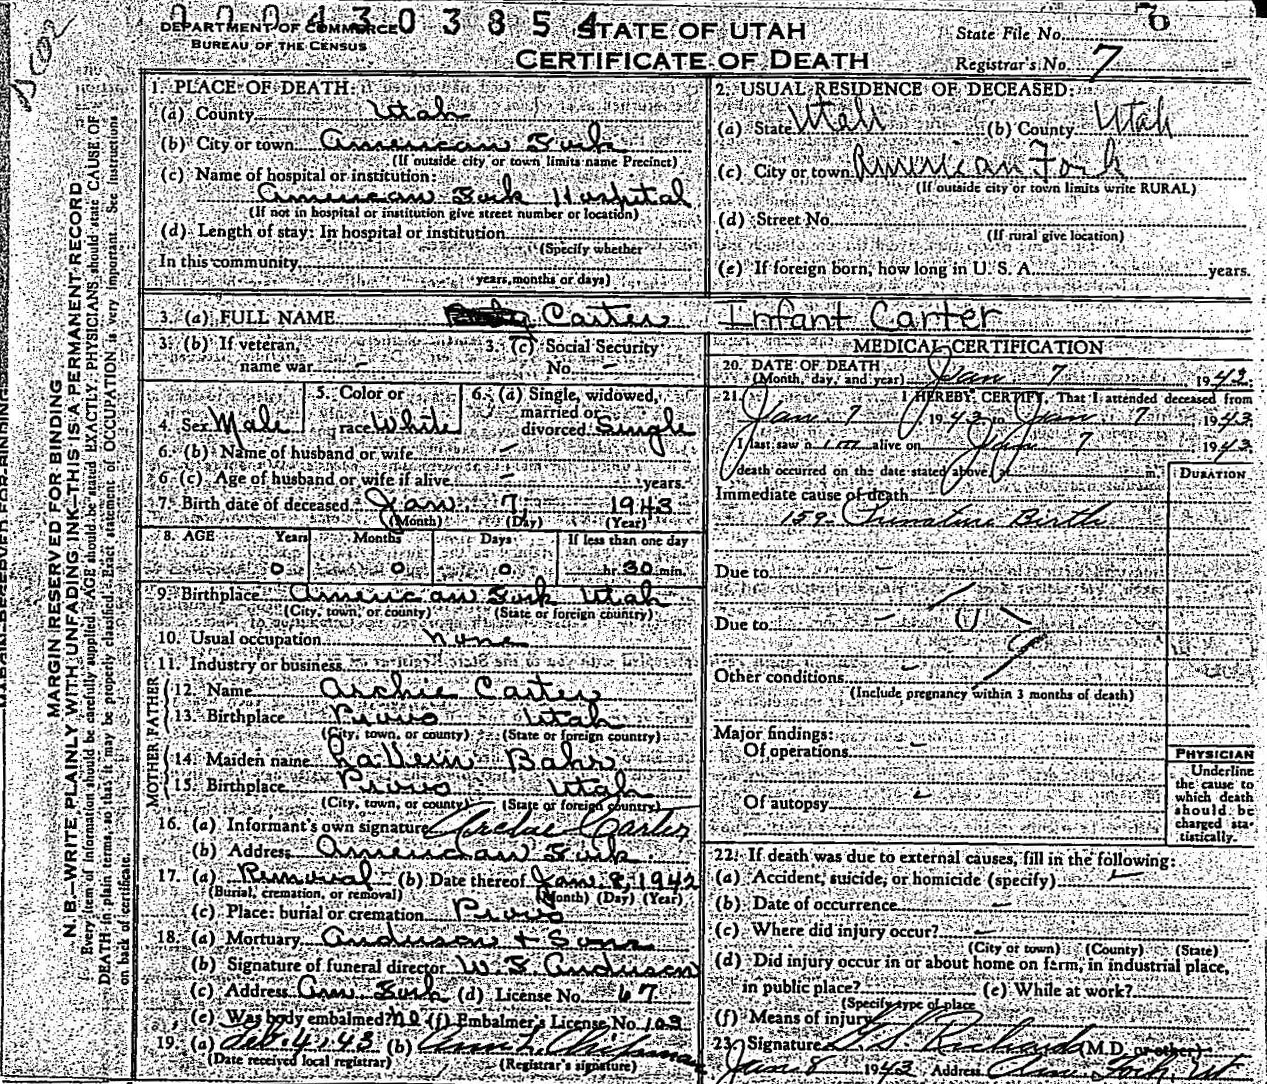 0 0 0 4 3 0 3 8 5 4
DEPARTMENT OF COMMERCE
BUREAU OF THE CENSUS
STATE OF UTAH
CERTIFICATE OF DEATH
State File No. 6
Registrar's No. 7
MARGIN RESERVED FOR BINDING
N. B.—WRITE PLAINLY WITH UNFADING INK—THIS IS A PERMANENT RECORD
Every item of information should be carefully supplied. AGE should be stated EXACTLY. PHYSICIANS should state CAUSE OF
DEATH in plain terms, so that it may be properly classified. Exact statement of OCCUPATION is very important. See instructions
on back of certificate.
1. PLACE OF DEATH:
(a) County Utah
(b) City or town American Fork
(If outside city or town limits name Precinct)
(c) Name of hospital or institution:
American Fork Hospital
(If not in hospital or institution give street number or location)
(d) Length of stay: In hospital or institution
(Specify whether
In this community
years, months or days)
2. USUAL RESIDENCE OF DECEASED:
(a) State Utah (b) County Utah
(c) City or town American Fork
(If outside city or town limits write RURAL)
(d) Street No.
(If rural give location)
(e) If foreign born, how long in U. S. A. years.
3. (a) FULL NAME Carter Infant Carter
3. (b) If veteran, name war –
3. (c) Social Security No. –
4. Sex Male
5. Color or race White
6. (a) Single, widowed, married or divorced Single
6. (b) Name of husband or wife –
6. (c) Age of husband or wife if alive – years.
7. Birth date of deceased Jan. 7, 1943
(Month) (Day) (Year)
8. AGE Years Months Days If less than one day
0 0 0 hr. 30 min.
9. Birthplace American Fork Utah
(City, town, or county) (State or foreign country)
10. Usual occupation None
11. Industry or business
FATHER
12. Name Archie Carter
13. Birthplace Provo Utah
(City, town, or county) (State or foreign country)
MOTHER
14. Maiden name LaVern Bahr
15. Birthplace Provo Utah
(City, town, or county) (State or foreign country)
16. (a) Informant's own signature Archie Carter
(b) Address American Fork
17. (a) Removal (b) Date thereof Jan. 8, 1942
(Burial, cremation, or removal) (Month) (Day) (Year)
(c) Place: burial or cremation Provo
18. (a) Mortuary Anderson + Sons
(b) Signature of funeral director W. S. Anderson
(c) Address Am. Fork (d) License No. 67
(e) Was body embalmed? No (f) Embalmer's License No. 103
19. (a) Feb. 4, 43 (b) Chipman
(Date received local registrar) (Registrar's signature)
MEDICAL CERTIFICATION
20. DATE OF DEATH
(Month, day, and year) Jan 7 1942
21. I HEREBY CERTIFY, That I attended deceased from
Jan. 7 1943 to Jan. 7 1943
I last saw h im alive on Jan 7 1943
death occurred on the date stated above, at m.
DURATION
Immediate cause of death
159. Premature Birth
Due to –
Due to –
Other conditions –
(Include pregnancy within 3 months of death)
Major findings:
Of operations –
Of autopsy –
PHYSICIAN
Underline
the cause to
which death
should be
charged sta-
tistically.
22. If death was due to external causes, fill in the following:
(a) Accident, suicide, or homicide (specify) –
(b) Date of occurrence –
(c) Where did injury occur? –
(City or town) (County) (State)
(d) Did injury occur in or about home on farm, in industrial place,
in public place? (e) While at work?
(Specify type of place
(f) Means of injury
23. Signature G. S. Richards (M.D. or other)
Jan 8 1943 Address Am. Fork Ut